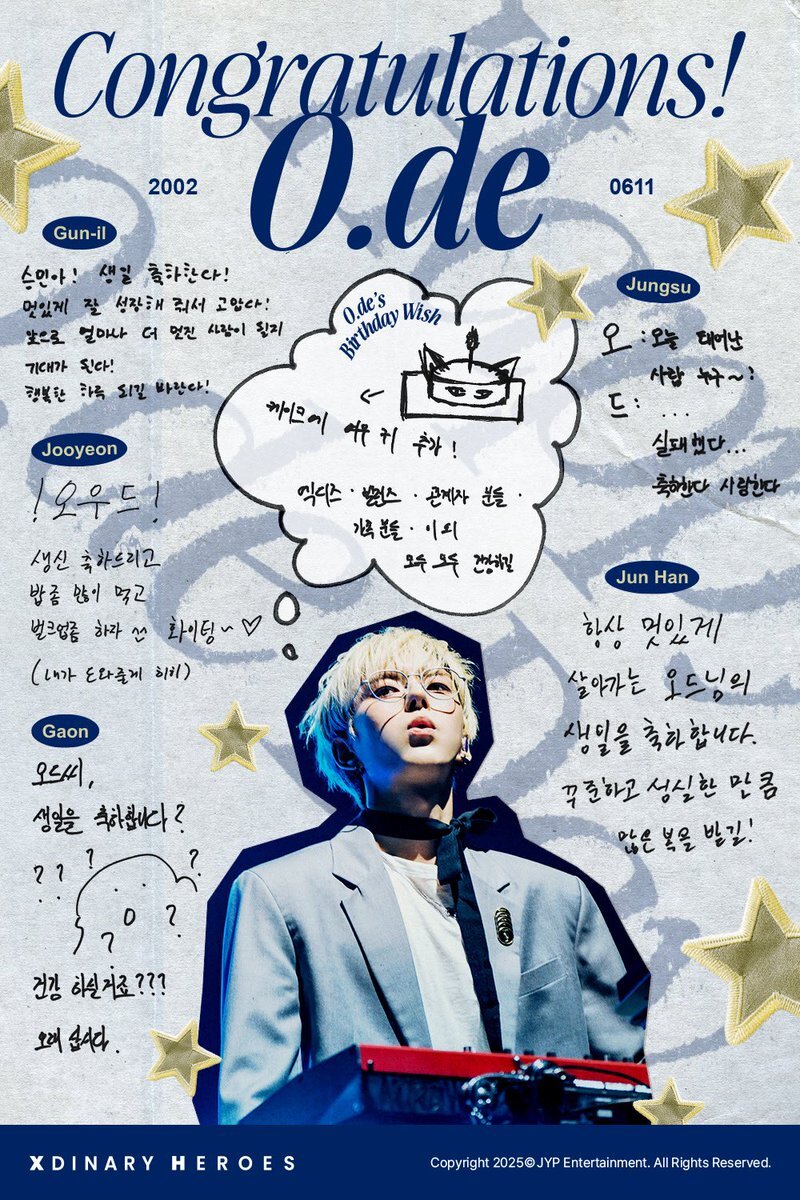 Congratulations!
O.de
2002
0611
Gun-il
승민아! 생일 축하한다!
멋있게 잘 성장해 줘서 고맙다!
앞으로 얼마나 더 멋진 사람이 될지
기대가 된다!
행복한 하루 되길 바란다!
O.de's
Birthday Wish
←
케이크에 여우 귀 추가!
엑디즈 · 빌런즈 · 관계자 분들 ·
가족 분들 · 이 외
모두 모두 건강하길
Jungsu
오 : 오늘 태어난
사람 누구~?
드 : ...
실패했다...
축하한다 사랑한다
Jooyeon
! 오우드 !
생신 축하드리고
밥 좀 많이 먹고
벌크업좀 하자 화이팅~ ♡
(내가 도와줄게 히히)
Jun Han
항상 멋있게
살아가는 오드님의
생일을 축하합니다.
꾸준하고 성실한 만큼
많은 복을 받길!
Gaon
오드씨,
생일을 축하합니다?
? ? ? ?
? ?
건강 하실거죠???
오래 삽시다.
XDINARY HEROES
Copyright 2025© JYP Entertainment. All Rights Reserved.